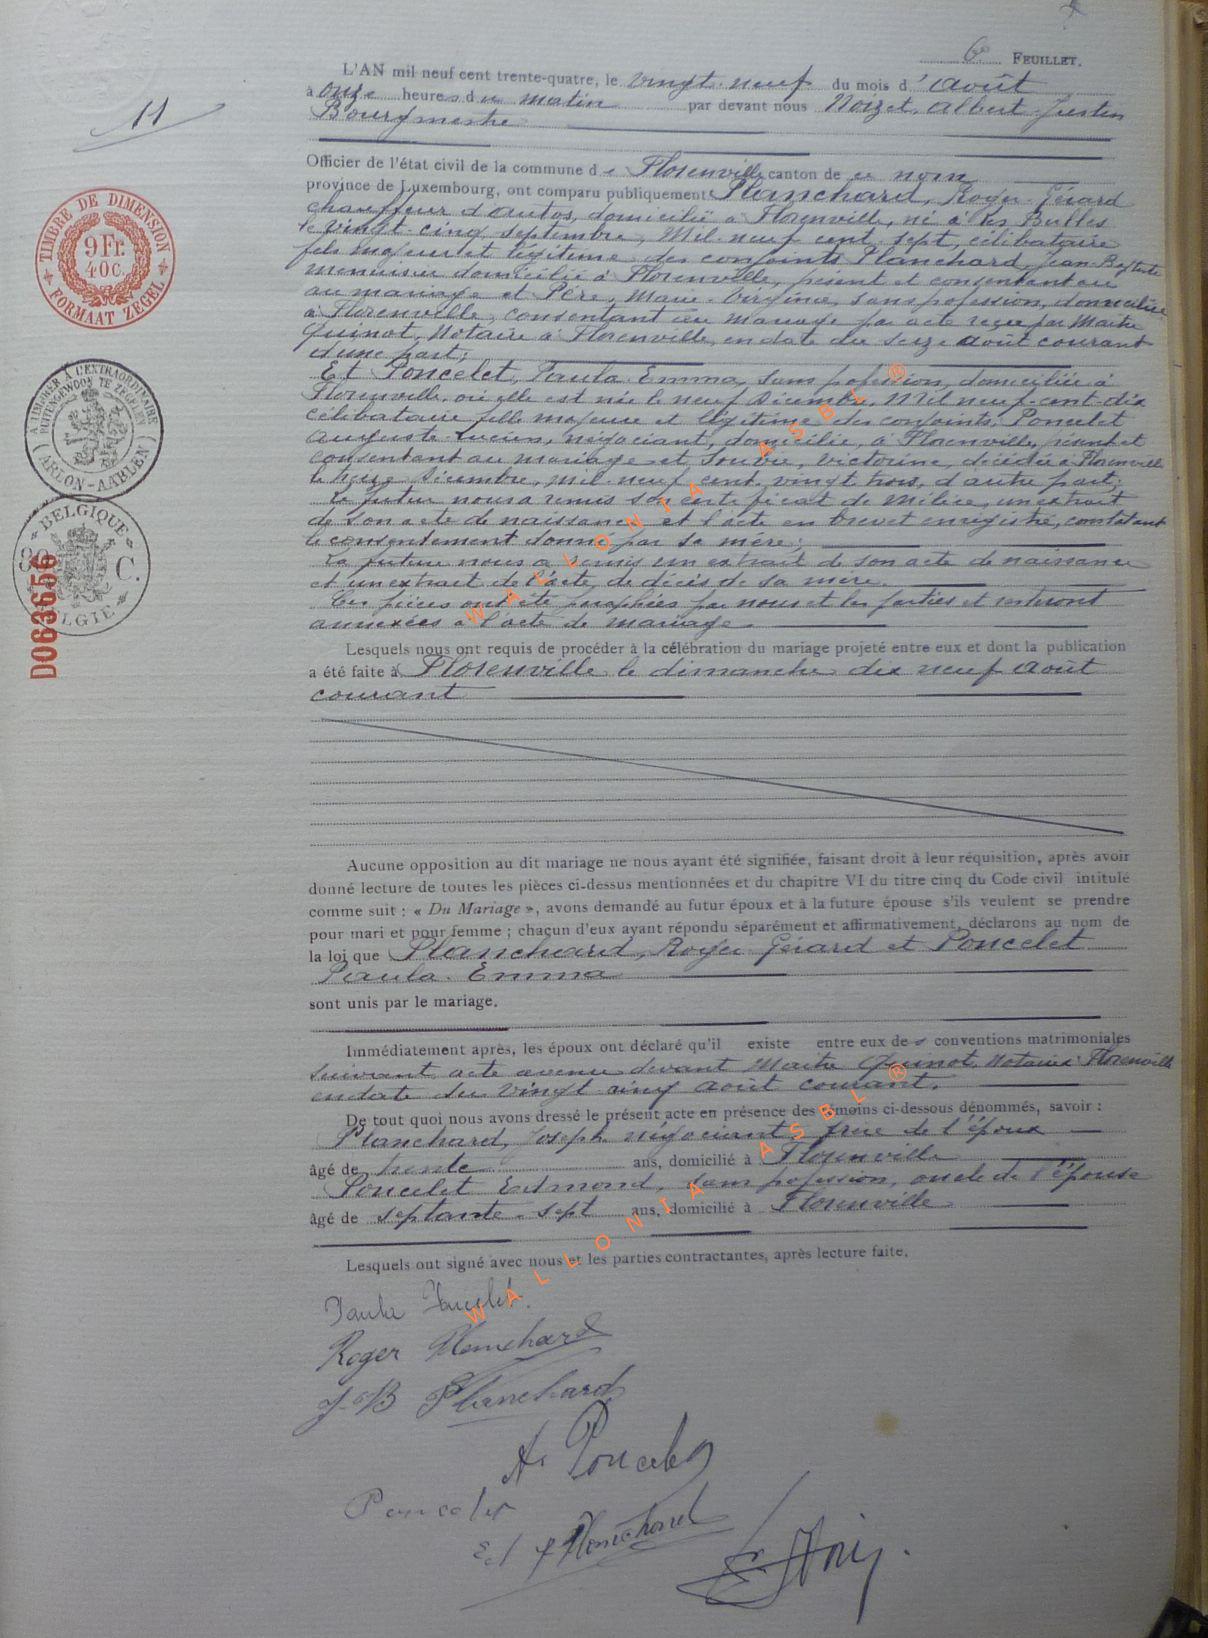 6e FEUILLET.
11
L'AN mil neuf cent trente-quatre, le vingt-neuf du mois d'août
à onze heures du matin par devant nous Noizet, Albert Justin
Bourgmestre
Officier de l'état civil de la commune de Florenville canton de ce nom
province de Luxembourg, ont comparu publiquement: Planchard, Roger Gérard
chauffeur d'autos, domicilié à Florenville, né à les Bulles
le vingt-cinq septembre, Mil neuf cent sept, célibataire
fils majeur et légitime des conjoints Planchard, Jean-Baptiste
menuisier domicilié à Florenville, présent et consentant au
au mariage et Père, Marie-Virginie, sans profession, domiciliée
à Florenville, consentant au mariage par acte reçu par Maître
Quinot, Notaire à Florenville, en date du seize août courant
d'une part;
Et Poncelet, Paula Emma, sans profession, domiciliée à
Florenville, où elle est née le neuf Décembre, Mil neuf-cent-dix
célibataire fille majeure et légitime des conjoints Poncelet
Auguste Lucien, négociant, domicilié, à Florenville, présent et
consentant au mariage et , Victorine, décédée à Florenville
le Décembre, mil neuf cent vingt trois, d'autre part;
Le futur nous a remis son certificat de Milice, un extrait
de son acte de naissance et l'acte en brevet enregistré, constatant
le consentement donné par sa mère;
La future nous a remis un extrait de son acte de naissance
et un extrait de l'acte de décès de sa mère.
Ces pièces ont été paraphées par nous et les parties et resteront
annexées à l'acte de mariage.
Lesquels nous ont requis de procéder à la célébration du mariage projeté entre eux et dont la publication
a été faite à Florenville le dimanche dix neuf août
courant
Aucune opposition au dit mariage ne nous ayant été signifiée, faisant droit à leur réquisition, après avoir
donné lecture de toutes les pièces ci-dessus mentionnées et du chapitre VI du titre cinq du Code civil intitulé
comme suit : « Du Mariage », avons demandé au futur époux et à la future épouse s'ils veulent se prendre
pour mari et pour femme ; chacun d'eux ayant répondu séparément et affirmativement, déclarons au nom de
la loi que Planchard, Roger Gérard et Poncelet
Paula Emma
sont unis par le mariage.
Immédiatement après, les époux ont déclaré qu'il existe entre eux des conventions matrimoniales
suivant acte avenu devant Maître Quinot, Notaire Florenville
en date du vingt cinq août courant.
De tout quoi nous avons dressé le présent acte en présence des témoins ci-dessous dénommés, savoir :
Planchard, Joseph négociant frère de l'époux
âgé de trente ans, domicilié à Florenville
Poncelet Edmond, sans profession, oncle de l'épouse
âgé de septante-sept ans, domicilié à Florenville
Lesquels ont signé avec nous et les parties contractantes, après lecture faite.
Paula Poncelet.
Roger Planchard
J-B Planchard
A. Poncelet
Poncelet
Ed J Planchard
TIMBRE DE DIMENSION
9 Fr.
40c.
FORMAAT ZEGEL
A TIMBRER À L'EXTRAORDINAIRE
BUITENGEWOON TE ZEGELEN
(ARLON-AARLEN)
BELGIQUE
S. C.
BELGIE
D063656
WALLONIA ASBL ®
WALLONIA ASBL ®